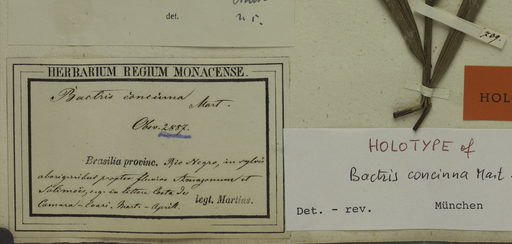 det.
HERBARIUM REGIUM MONACENSE.
Bactris concinna Mart.
Obs. 2887.
Brasilia provinc. Rio Negro, in sylvis
aboriginibus propter fluvios Amazonum et
Solimoës, e.g. in littore Costa de
Camara-Coari. Mart.-April.
legt. Martius.
209.
HOL
HOLOTYPE of
Bactris concinna Mart.
Det. - rev. München